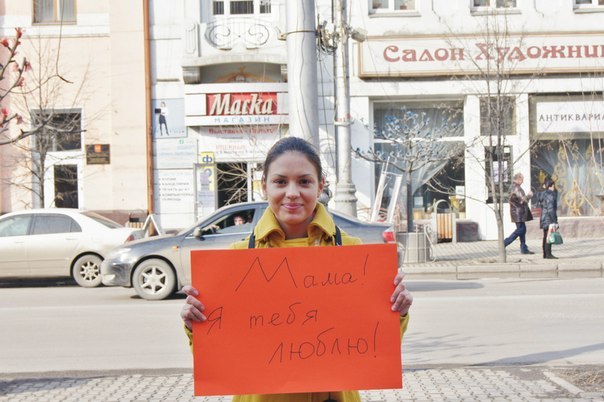 Салон Художник
Маска
МАГАЗИН
АНТИКВАРИА
Мама!
Я тебя
люблю!